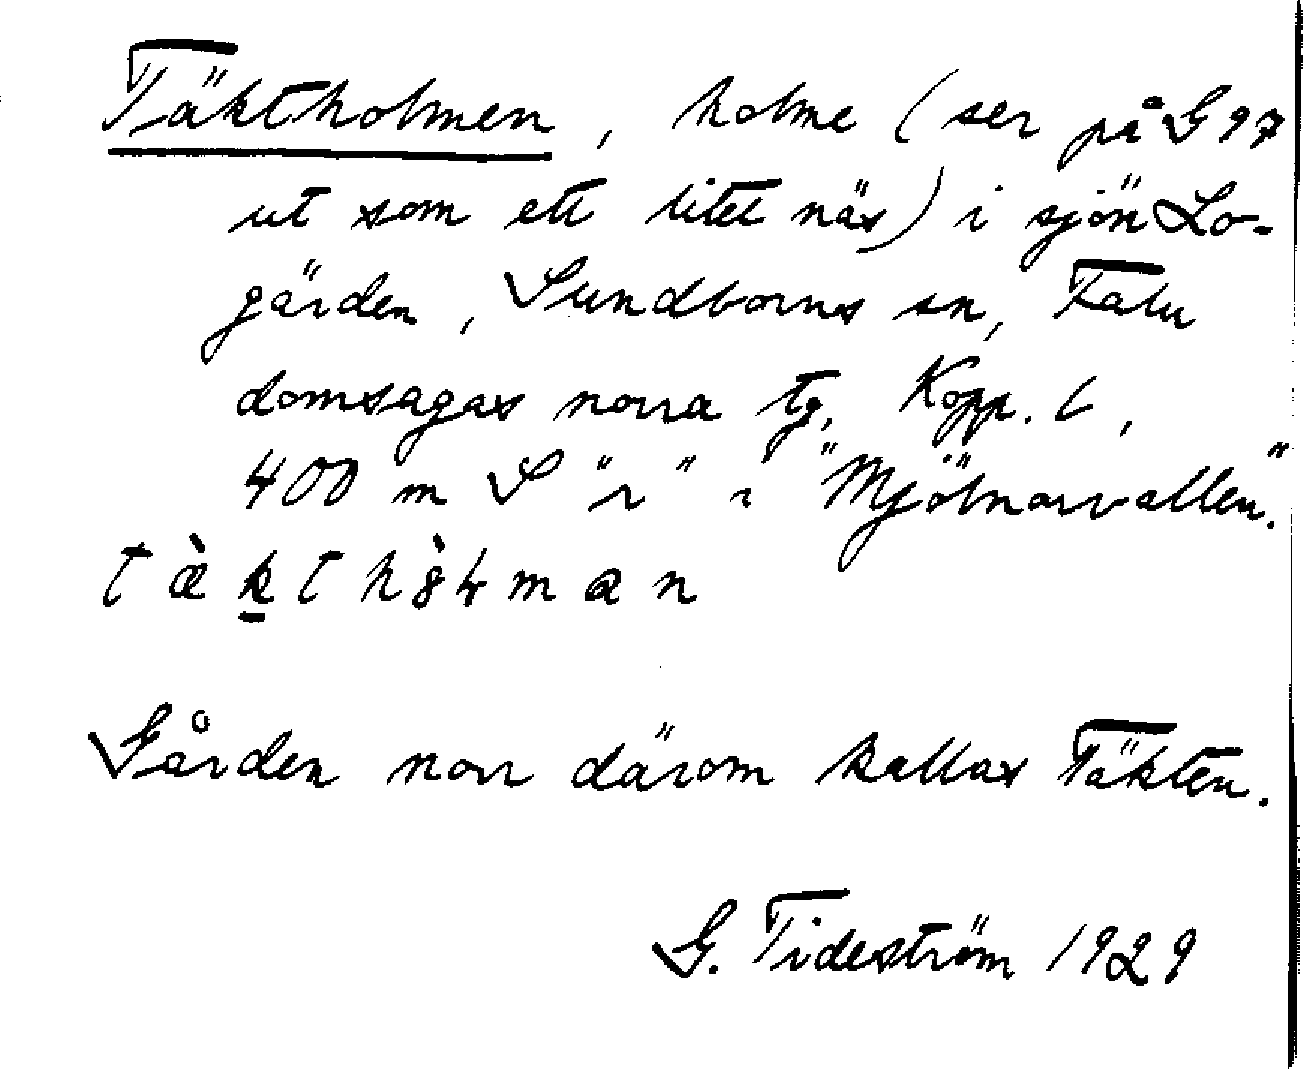 Täktholmen, holme (ser på G97
ut som ett litet näs) i sjön Lo-
gärden, Sundborns sn, Falu
domsagas norra tg, Kopp. l,
400 m S "r" i "Mjölnarvallen".
t æ̀ k̲ t h 8̀ ɫ m a n
Gården norr därom kallas Täkten.
G. Tideström 1929